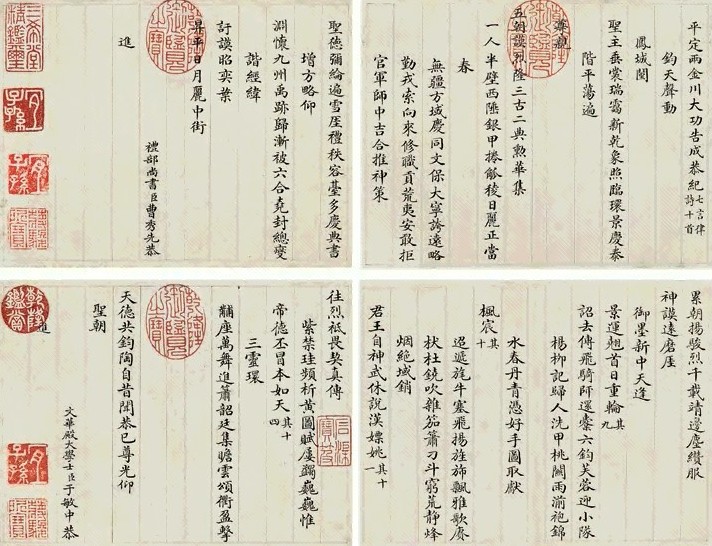 平定兩金川大功告成恭紀七言律詩十首
鈞天聲動
鳳城闉
聖主垂裳瑞靄新乾象照臨環景慶泰
階平蕩遍
五朝謨烈隆三古二典勲華集
一人半壁西陲銀甲捲觚稜日麗正當
春
無疆方域慶同文保大寧誇遠略
勤戎索向來修職貢荒夷安敢拒
官軍師中吉合推神策
聖德彌綸遍雪厓禮秩容臺多慶典書
增方略仰
淵懷九州禹跡歸漸被六合堯封總燮
諧經緯
訏謨昭奕葉
昇平日月麗中街
進
禮部尚書臣曹秀先恭
乾隆御覽之寶
三希堂精鑑璽
宜子孫
累朝揚駿烈千載靖邊塵纘服
神謨遠磨厓
御墨新中天逢
景運翹首日重輪其九
詔去傳飛騎師還櫜六鈞芙蓉迎小隊
楊柳記歸人洗甲桃關雨湔袍錦
水春丹青憑好手圖取獻
楓宸其十
迢遞旄牛塞飛揚旌旆飄雅歌賡
杕杜鐃吹雜笳簫刁斗窮荒静烽
烟絶域銷
君王自神武休說漢嫖姚其十一
往烈祗畏契真傳
紫禁珪頻析黄圖賦屢蠲巍巍惟
帝德丕冒本如天其十四
三靈環
黼座萬舞進簫韶廷集瞻雲頌衢盈擊
天德共鈞陶自昔聞恭己尊光仰
聖朝
進
文華殿大學士臣于敏中恭
乾隆御覽之寶
乾隆鑑賞
宜子孫